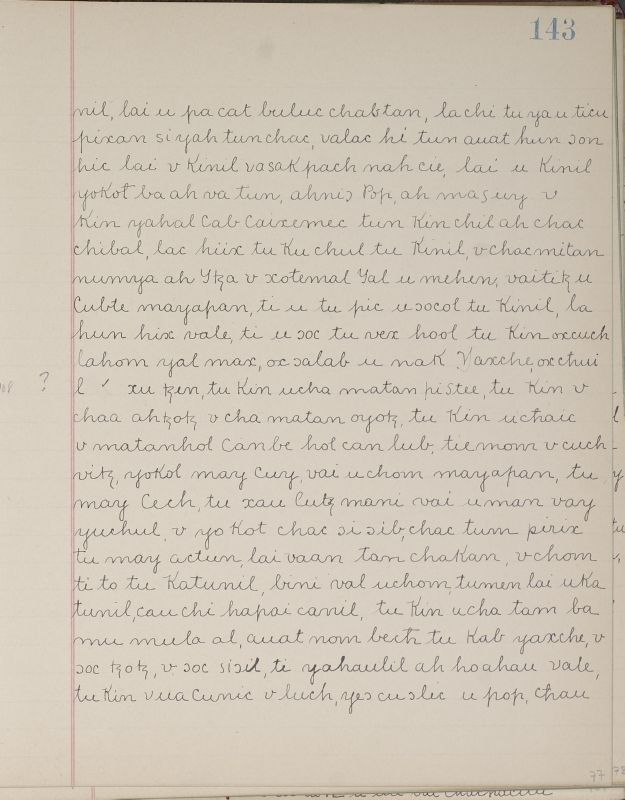 143
nil, lai u pa cat buluc chabtan, lachi tu yau ticu
pixan si yah tunchac, valac hi tun auat hun ɔon
hic lai v Kinil vasak pach nah cie, lai u Kinil
yoKot ba ah va tun, ahniɔ Pop, ah masuy v
Kin yahal Cab Caixemec tun Kin chil ah chac
chibal, lac hiix tu Ku chul tu Kinil, v chac mitan
numya ah Ytza v xotemal Yal u mehen, vaitiꜩ u
Cubte mayapan, ti u tu pic uɔocol tu Kinil, la
hun hix vale, ti u ɔoc tu vex hool tu Kin oxcuch
lahom yal max, oxɔalab u nak Yaxche, oxchui
? l ´ xu ꜩen, tu Kin ucha matan piStee, tu Kin v
chaa ahꜩoꜩ v cha matan oyoꜩ, tu Kin uchaic
v matanhol Canbe hol can lub, tiemom v cuch
vitꜩ, yoKol may Cuy, vai uchom mayapan, tu
may Cech, tu xau Cutꜩ mani vai uman vay
yuchul, v yo Kot chac si sib, chac tum pirix
tu may actun, lai vaan tan chaKan, v chom
ti to tu Katunil, bini val uchom, tumen lai uKa
tunil, cau chi hapai canil, tu Kin ucha tam ba
mu mula al, auat nom bech tu Kab yaxche, v
ɔoc ꜩoꜩ, v ɔoc siɔil, ti yahaulil ah hoahau vale,
tu Kin vua Cunic v luch, yeɔ cuɔlic u pop, chau
77
78